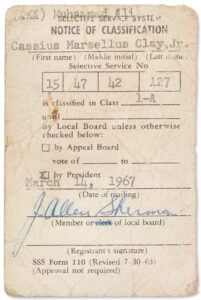 (AKA) Muhammad Ali
SELECTIVE SERVICE SYSTEM
NOTICE OF CLASSIFICATION
Cassius Marsellus Clay, Jr.
(First name) (Middle initial) (Last name)
Selective Service No
15 47 42 127
is classified in Class 1-A
until
by Local Board unless otherwise
checked below:
☐ by Appeal Board
vote of to
☒ by President
March 14, 1967
(Date of mailing)
J. Allen Sherman
(Member or clerk of local board)
(Registrant's signature)
SSS Form 110 (Revised 7-30-65)
(Approval not required)